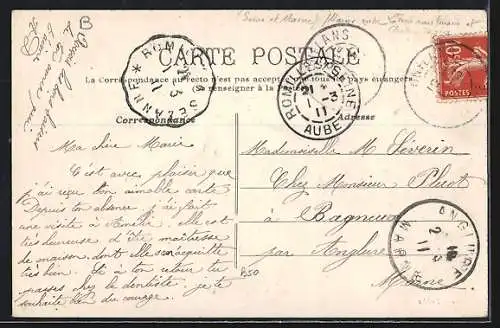 B
CARTE POSTALE
La Correspondance au recto n'est pas acceptée par tous les pays étrangers
(Se renseigner à la Poste)
Correspondance
Adresse
ROMILLY-S-SEINE
21
1 -3
11
AUBE
ROMILLY
SÉZANNE
10
Ma chère Marie
C'est avec plaisir que
j'ai reçu ton aimable carte
Depuis ton absence j'ai fait
une visite à Amélie elle est
très heureuse d'être maîtresse
de maison dont elle s'acquitte
très bien. Si à ton retour tu
passes chez le dentiste je te
souhaite bien du courage.
Mademoiselle M Séverin
Chez Monsieur Pluot
à Bagneux
par Anglure
Marne
P50
ANGLURE
2 -3
11
MARNE